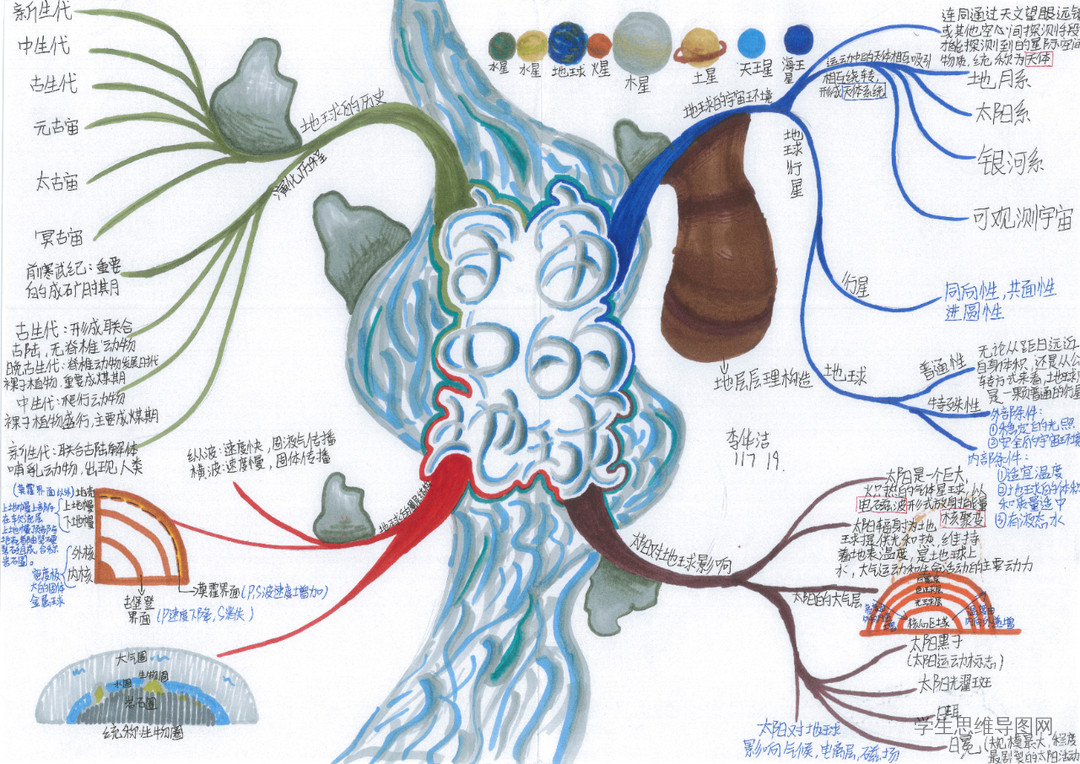 新生代
中生代
古生代
元古宙
太古宙
冥古宙
前寒武纪：重要
的成矿时期
古生代：形成联合
古陆，无脊椎动物
晚古生代：脊椎动物发展时代
裸子植物，重要成煤期
中生代：爬行动物
裸子植物盛行，主要成煤期
新生代：联合古陆解体
哺乳动物，出现人类
地球的历史
演化历程
水星
金星
地球
火星
木星
土星
天王星
海王星
地球的宇宙环境
连同通过天文望眼远镜
或其他空间探测手段
才能探测到的星际空间
物质，统称为天体
运动中的天体相互吸引
相互绕转，
形成天体系统
地月系
太阳系
银河系
可观测宇宙
地球行星
行星
同向性，共面性
近圆性
地球
普通性
无论从距日远近
自身体积，还是从公
转方式来看，地球
是一颗普通的行星
特殊性
外部条件：
①稳定的光照
②安全的宇宙环境
内部条件：
①适宜温度
②地球的体积
和质量适中
③有液态水
地层层理构造
宇宙中的地球
李华洁
117 19.
纵波：速度快，固液气传播
横波：速度慢，固体传播
地球的圈层结构
(莫霍界面以外)
地壳
上地幔
下地幔
外核
内核
莫霍界面(P，S波速度增加)
古登堡
界面
(P速度下降，S消失)
大气圈
水圈
生物圈
岩石圈
统称生物圈
太阳对地球影响
太阳是一个巨大，
炽热的气体星球，以
电磁波形式放射能量
核聚变
太阳辐射为地
球提供光和热，维持
着地表温度，是地球上
水，大气运动和生命活动的主要动力
太阳的大气层
太阳黑子
(太阳活动标志)
太阳光耀斑
日珥
日冕 (规模最大，程度
最剧烈的太阳活动
太阳对地球
影响气候，电离层，磁场
学生思维导图网